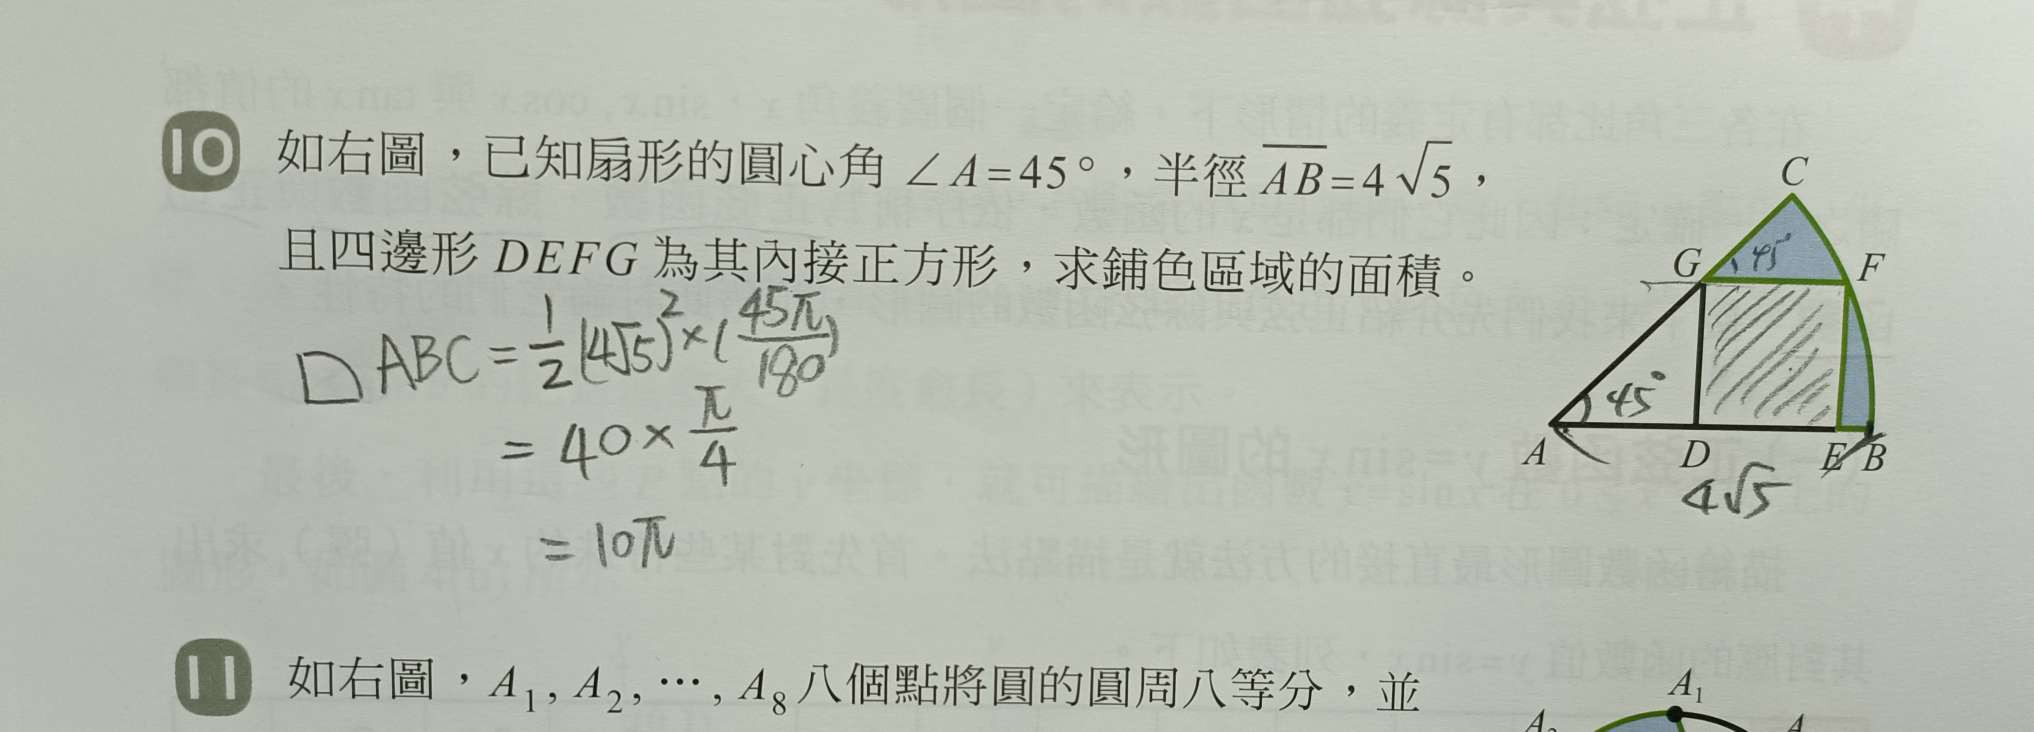 10 如右圖，已知扇形的圓心角 ∠A=45°，半徑 AB=4√5，
且四邊形 DEFG 為其內接正方形，求鋪色區域的面積。
ABC = 1/2 (4√5)² × (45π/180)
= 40 × π/4
= 10π
C
G 45° F
45°
A D E B
4√5
11 如右圖，A₁, A₂, …, A₈ 八個點將圓的圓周八等分，並
A₁